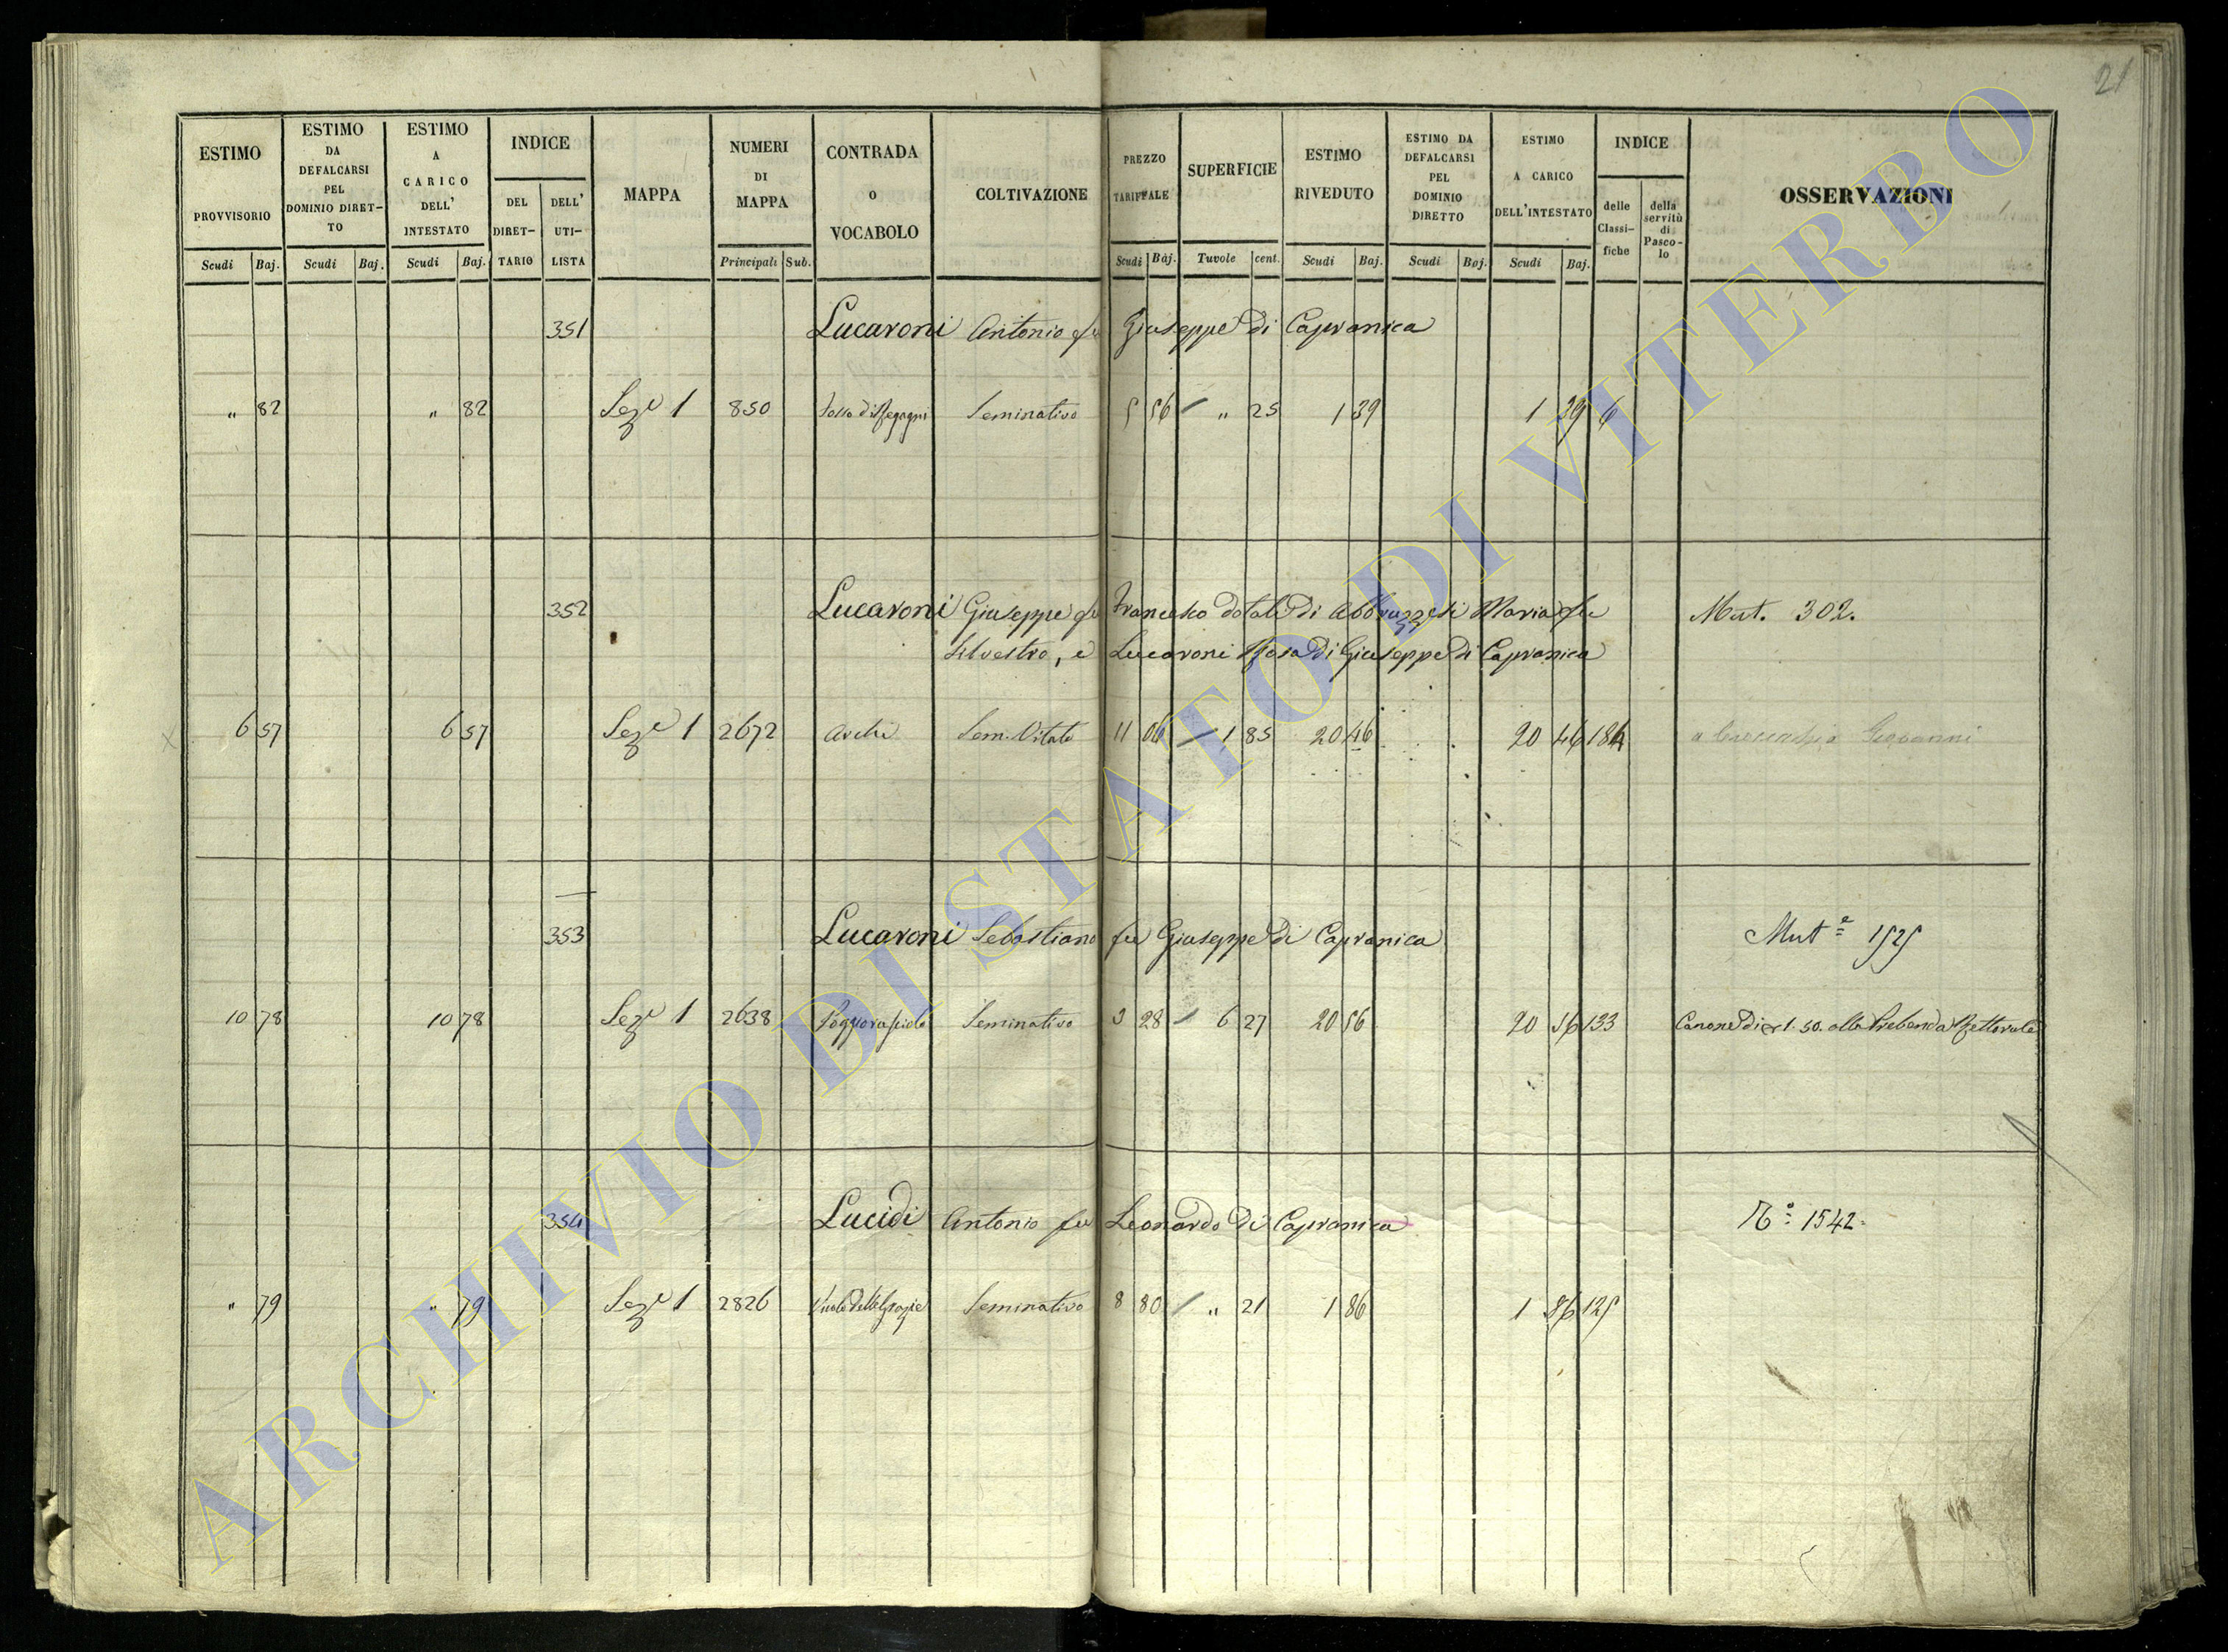 21
ESTIMO PROVVISORIO Scudi Baj.
ESTIMO DA DEFALCARSI PEL DOMINIO DIRETTO Scudi Baj.
ESTIMO A CARICO DELL' INTESTATO Scudi Baj.
INDICE DEL DIRETTARIO DELL' UTILISTA
MAPPA
NUMERI DI MAPPA Principali Sub.
CONTRADA O VOCABOLO
COLTIVAZIONE
PREZZO TARIFFALE Scudi Baj.
SUPERFICIE Tavole cent.
ESTIMO RIVEDUTO Scudi Baj.
ESTIMO DA DEFALCARSI PEL DOMINIO DIRETTO Scudi Baj.
ESTIMO A CARICO DELL'INTESTATO Scudi Baj.
INDICE delle Classifiche della servitù di Pascolo
OSSERVAZIONI
351 Lucaroni Antonio fu Giuseppe di Capranica
" 82 " 82 Sez.e 1 850 Seminativo 5 56 " 25 1 39 1 39 6
352 Lucaroni Giuseppe fu Francesco dotale di Abbruzzesi Maria fu Mut. 302.
Silvestro, e Lucaroni Rosa di Giuseppe di Capranica
6 57 6 57 Sez.e 1 2672 Archi Sem. Vitato 11 06 1 85 20 46 20 46 184 Giovanni
353 Lucaroni Sebastiano fu Giuseppe di Capranica Mut.e 1525
10 78 10 78 Sez.e 1 2638 Seminativo 3 28 6 27 20 56 20 56 133 Canone di 1.50. alla Prebenda Rettorale
354 Lucidi Antonio fu Leonardo di Capranica 1542
" 79 " 79 Sez.e 1 2826 Vicolo delle Grazie Seminativo 8 80 " 21 1 86 1 86 125
ARCHIVIO DI STATO DI VITERBO